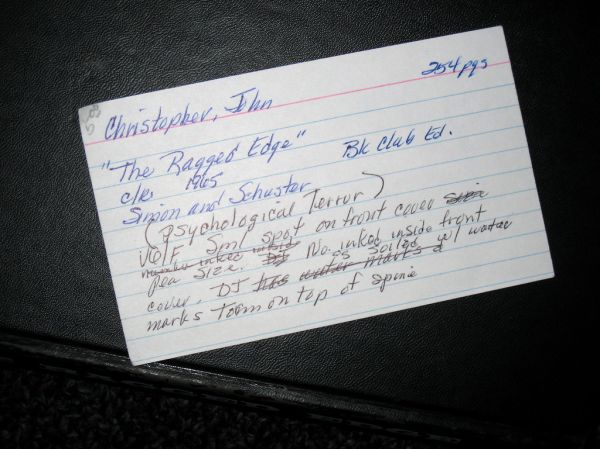 254 pgs
Christopher, John
"The Ragged Edge" Bk Club Ed.
1965
Simon and Schuster
(psychological Terror)
VG/F Sml spot on front cover
pea size. No. inked inside front
cover. DJ is soiled w/ water
marks torn on top of spine